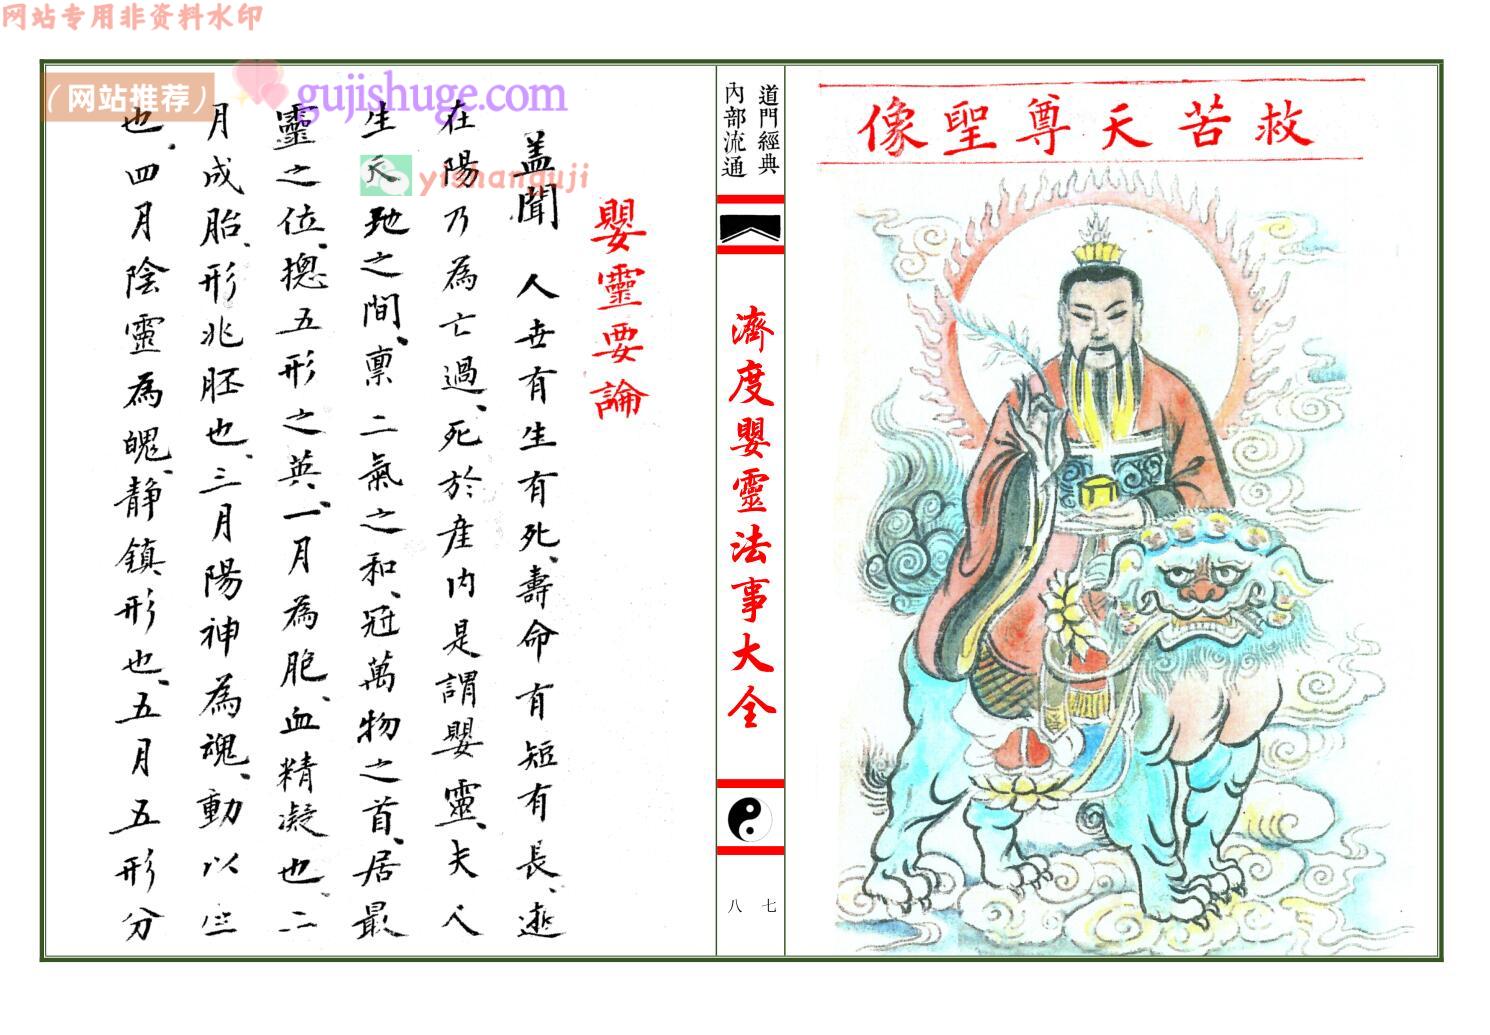 网站专用非资料水印
救苦天尊聖像
道門經典
內部流通
濟度嬰靈法事大全
七
八
（网站推荐）
gujishuge.com
yishanguji
嬰靈要論
盖聞 人世有生有死、壽命有短有長、
在陽乃為亡過、死於產内是謂嬰靈、夫人
生天地之間、稟二氣之和、冠萬物之首、居最
靈之位、摠五形之英、一月為胞、血精凝也、二
月成胎、形兆胚也、三月陽神為魂、動以
也、四月陰靈為魄、静鎮形也、五月五形分